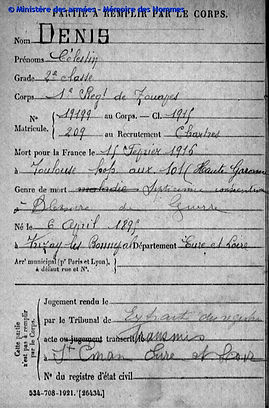 © Ministère des armées - Mémoire des Hommes
PARTIE A REMPLIR PAR LE CORPS.
Nom DENIS
Prénoms Célestin
Grade 2e classe
Corps 1er Regt de Zouaves
N° Matricule. 19199 au Corps. — Cl. 1915
209 au Recrutement Chartres
Mort pour la France le 15 Février 1916
à Toulouse hop. aux. 101 (Haute Garonne
Genre de mort maladie Septicémie consécutive
à Blessure de Guerre
Né le 6 April 1895
à Trizay les Bonneval Département Eure et Loire
Arr' municipal (p' Paris et Lyon), à défaut rue et N°.
Cette partie n'est pas à remplir par le Corps.
Jugement rendu le
par le Tribunal de Extrait du registre
acte ou jugement transcrit Transmis
à St Eman Eure et Loir
N° du registre d'état civil
534-708-1921. [26434.]